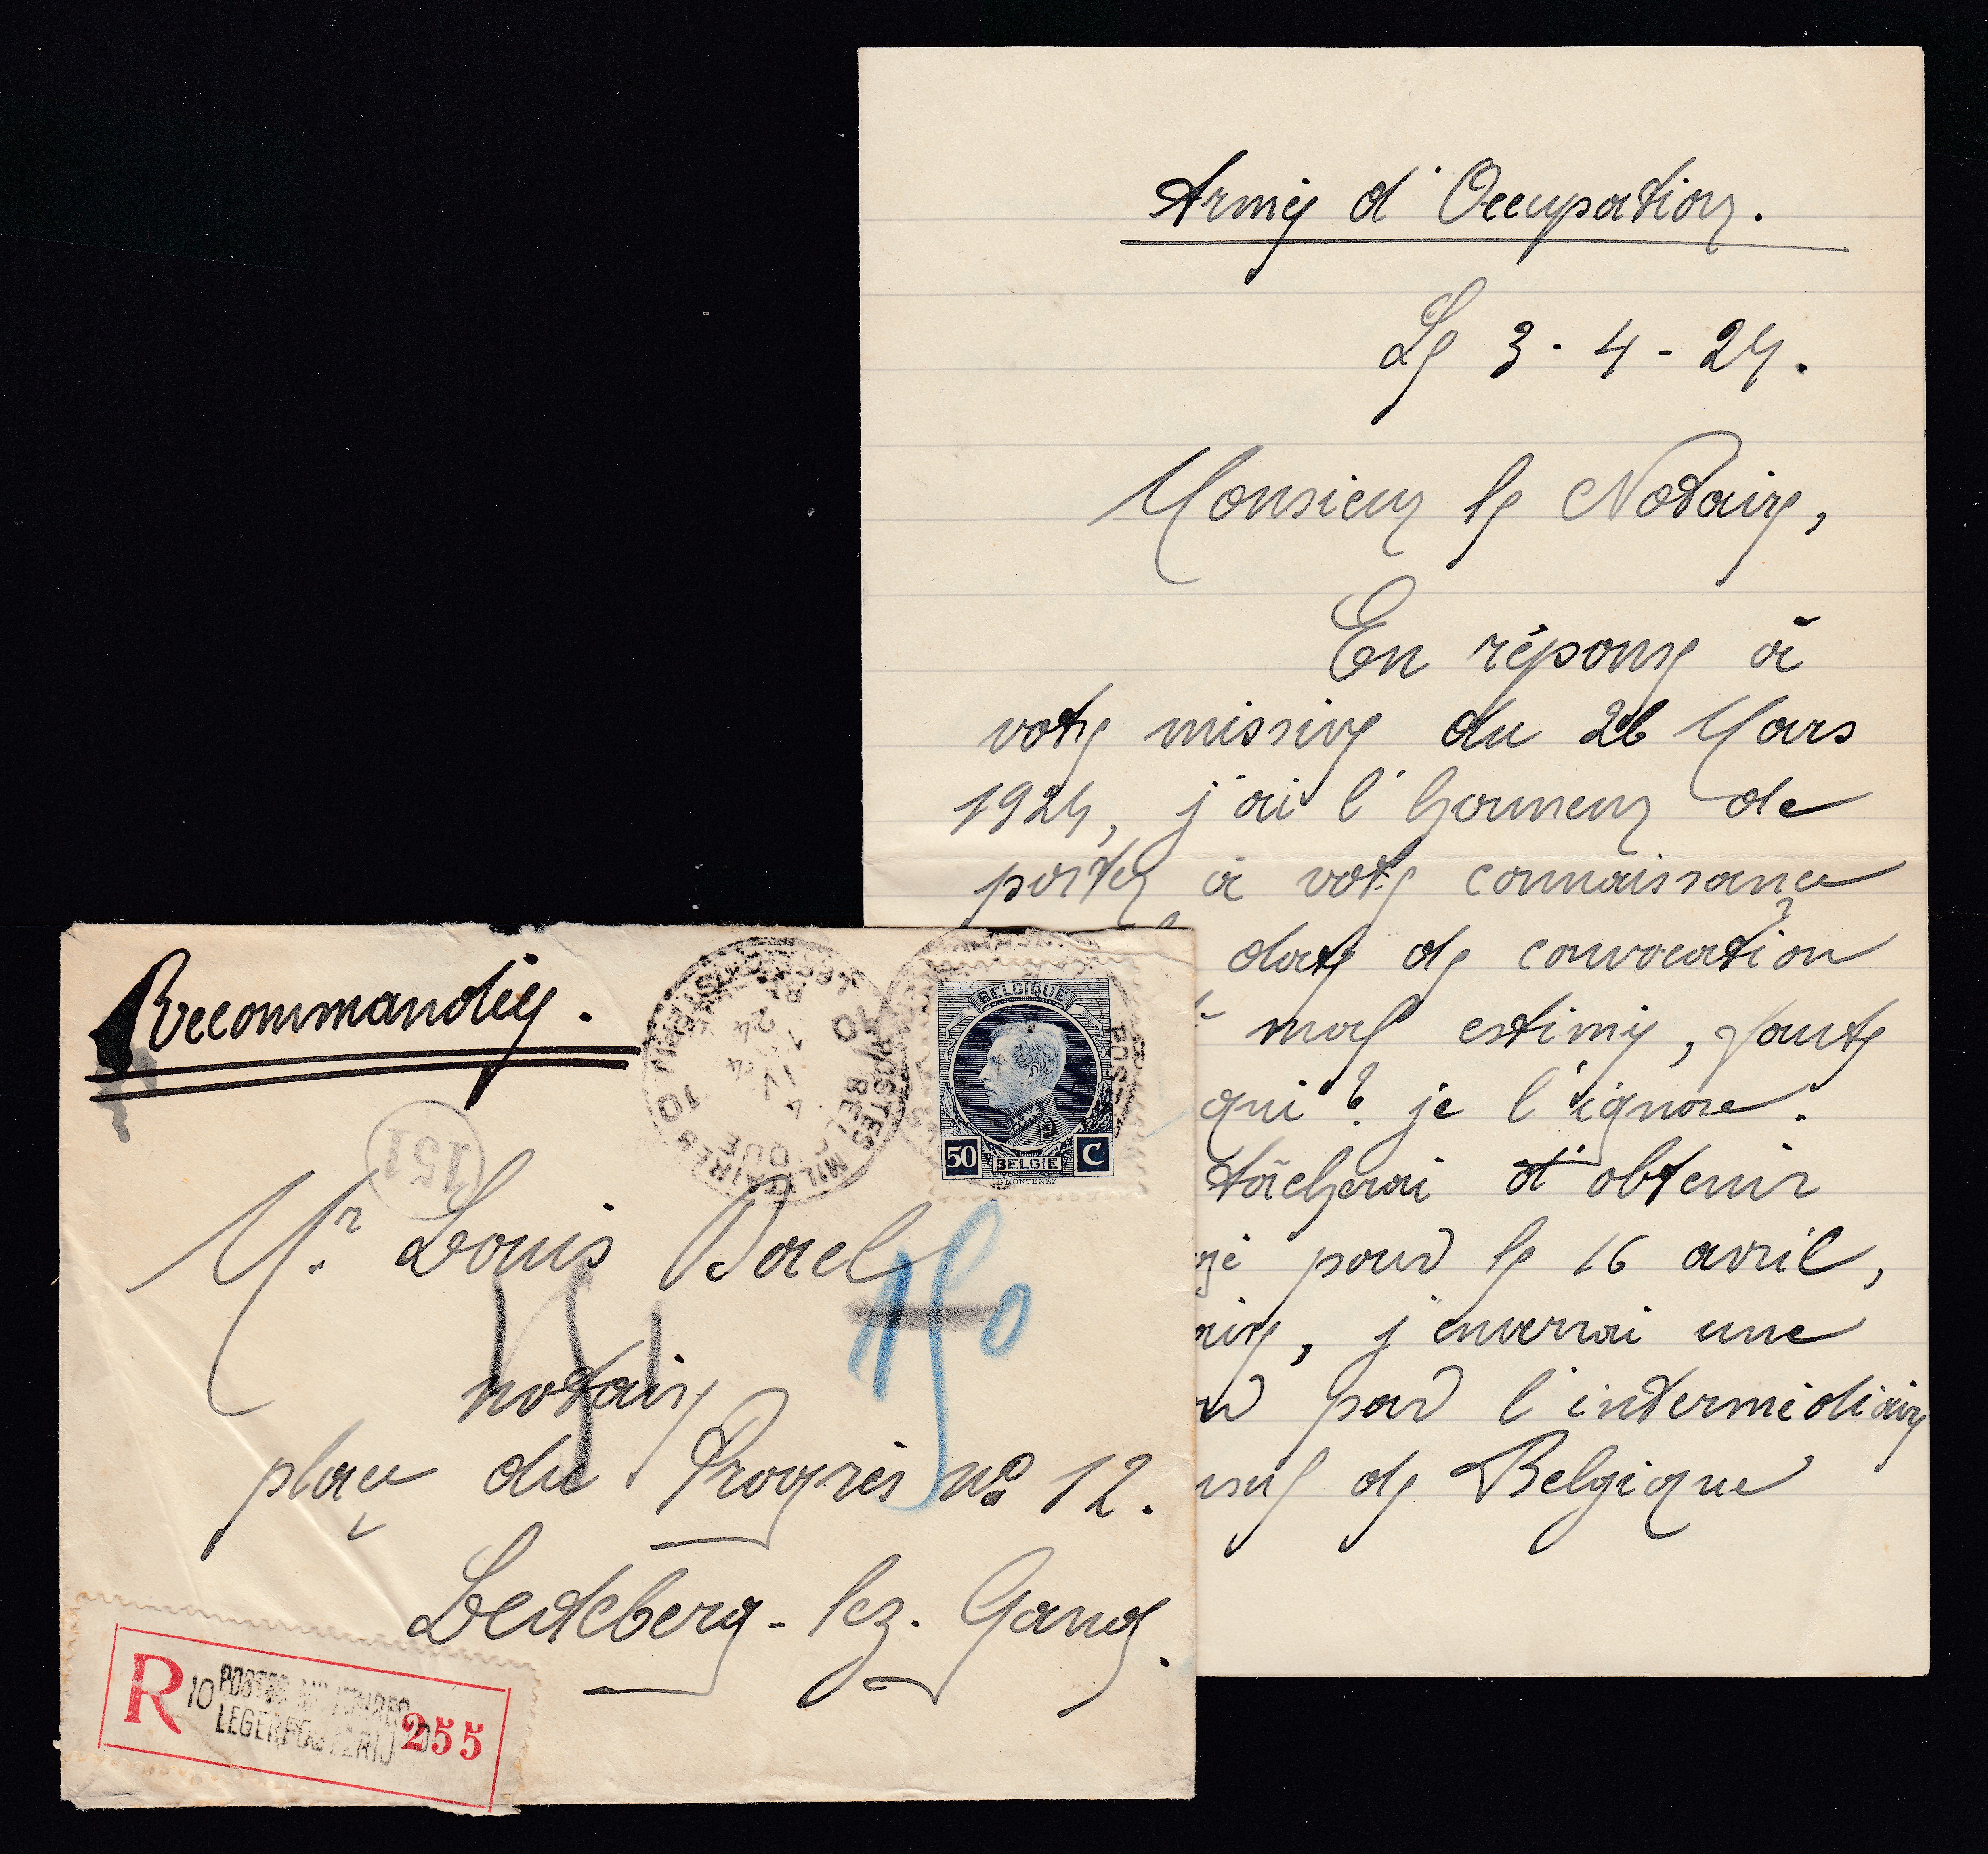 Armée d'Occupation.
Le 3-4-24.
Monsieur le Notaire,
En réponse à
votre missive du 26 Mars
1924, j'ai l'honneur de
porter à votre connaissance
date de convocation
mal estimée, faute
qui? je l'ignore.
tâcherai d'obtenir
pour le 16 avril,
j'enverrai une
par l'intermédiaire
de Belgique
Recommandée.
151
POSTES MILITAIRES 10
BELGIQUE
4 IV
24
BELGIQUE
50 BELGIE C
G.MONTENEZ
Mr Louis Bael
151
150
notaire
place du Progrès no 12.
Ledeberg-lez-Gand.
R 10 POSTES MILITAIRES
LEGERPOSTERIJ 10
255